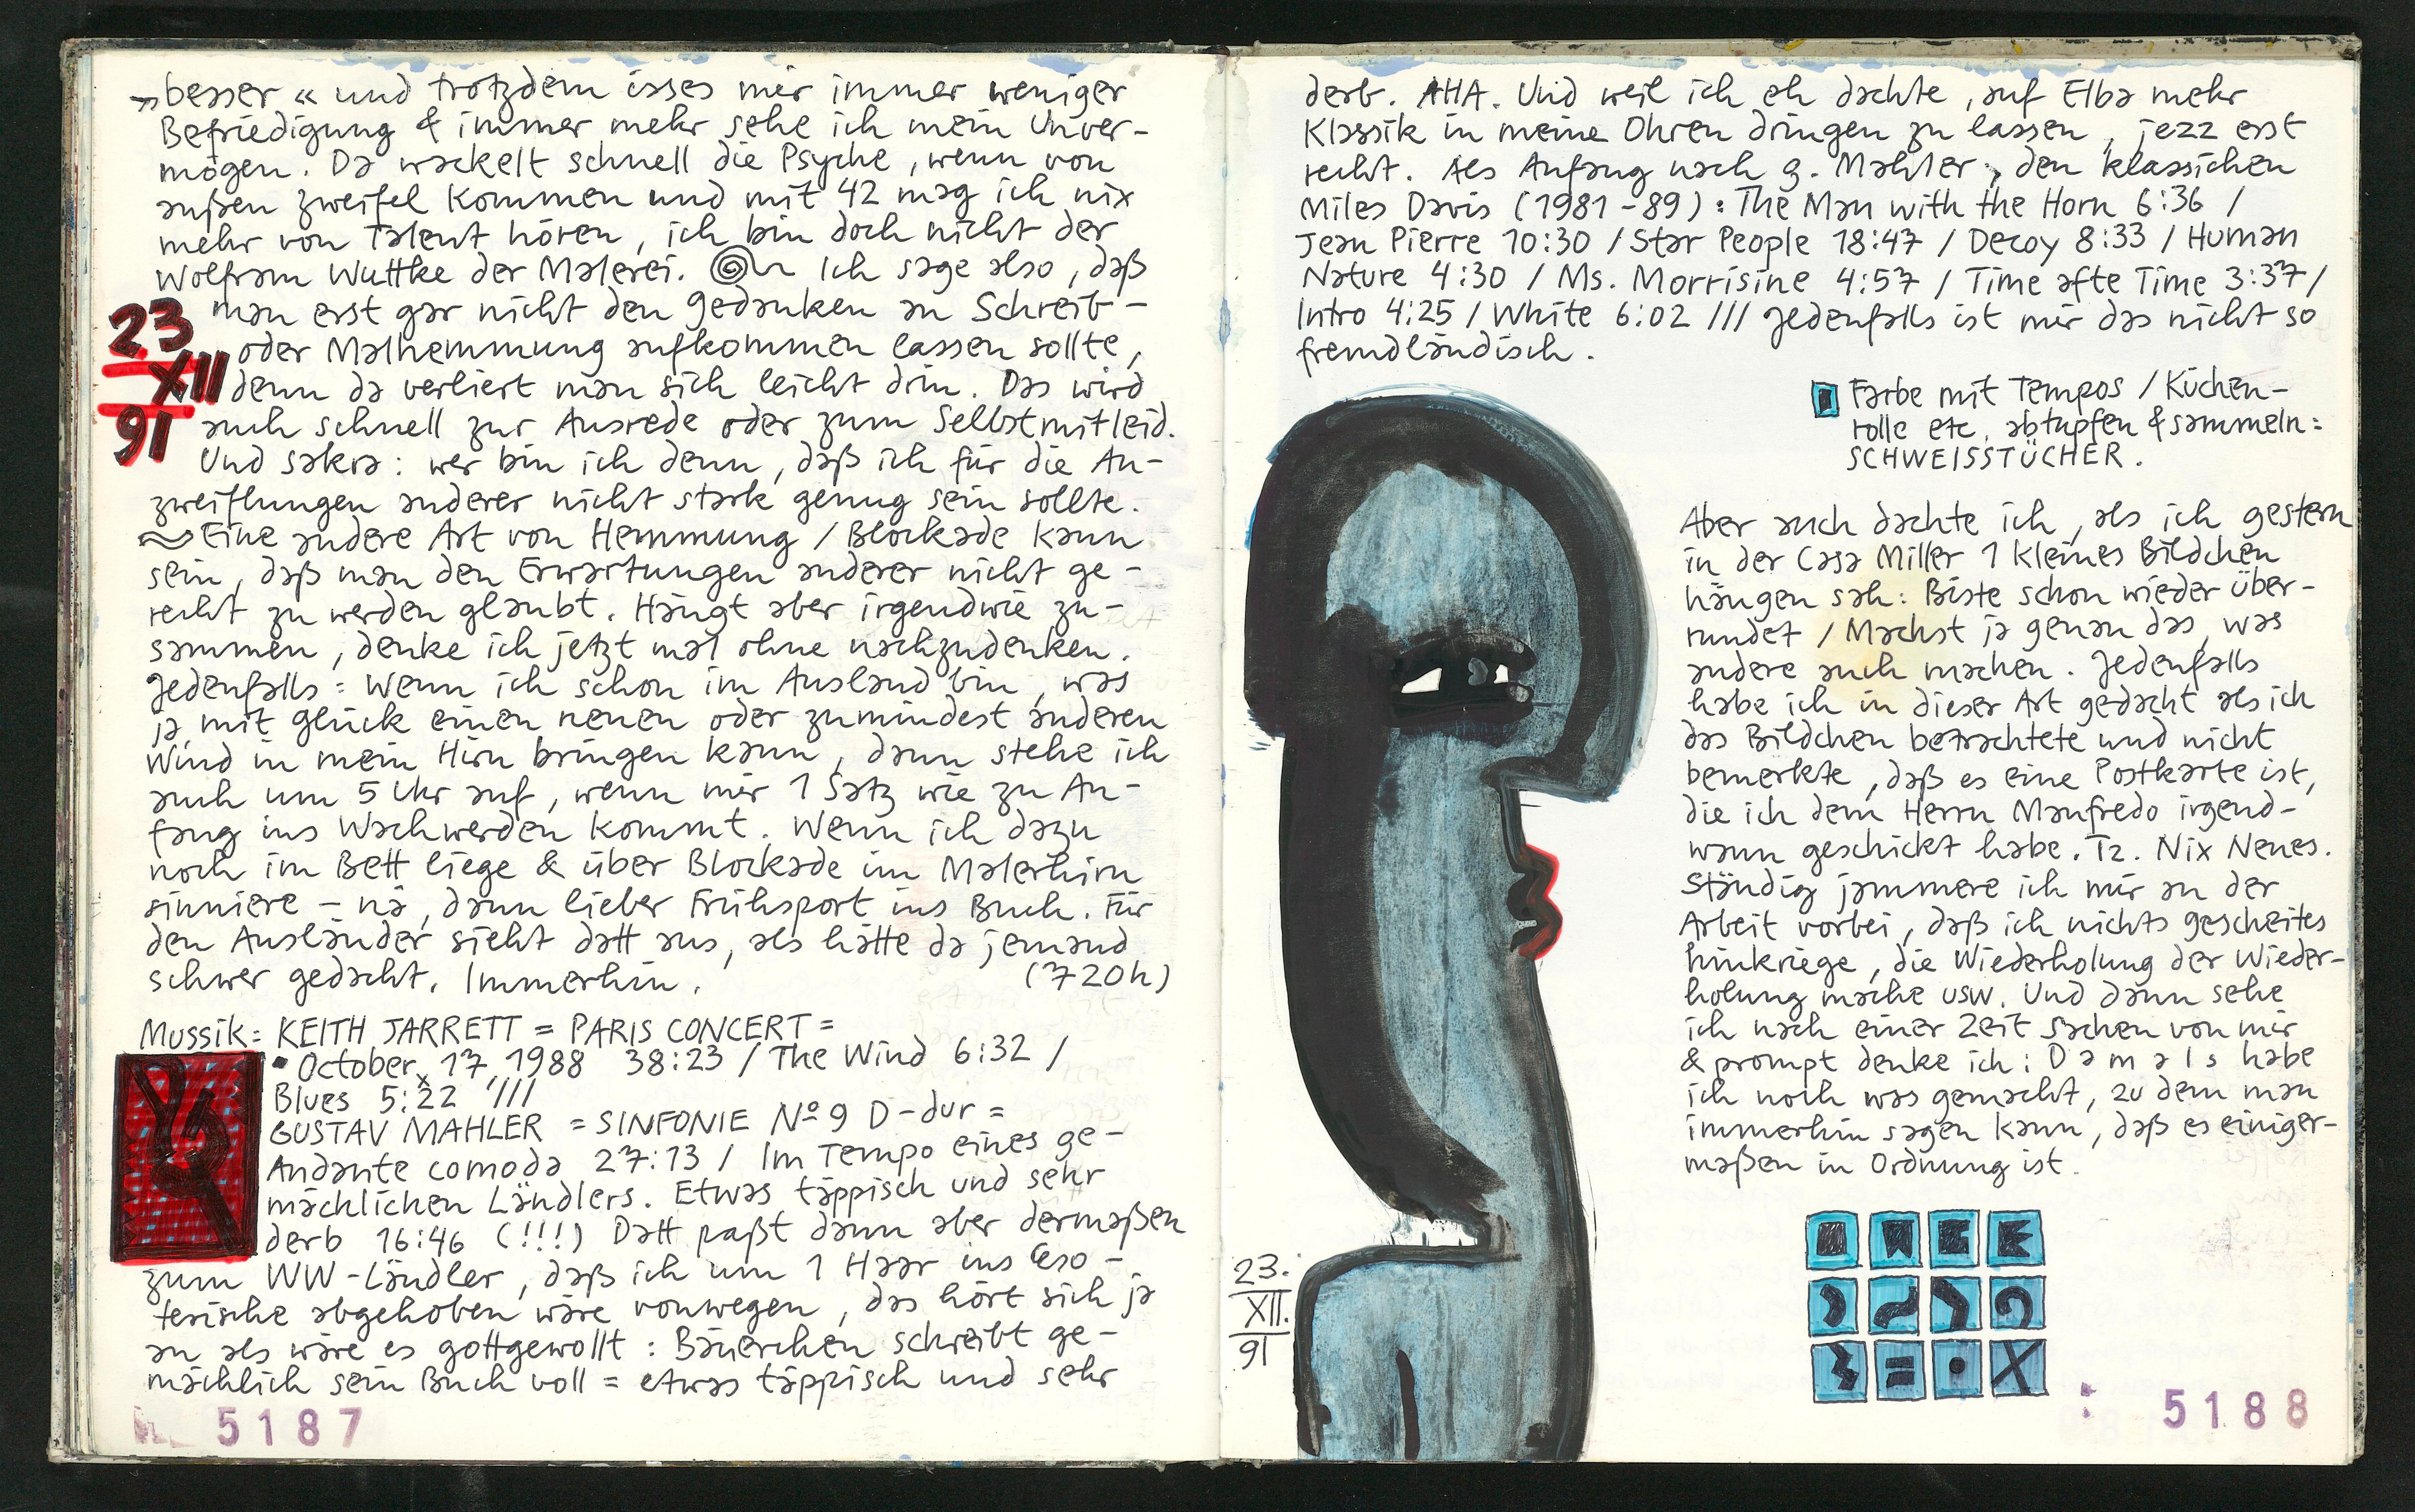 »besser« und trotzdem isses mir immer weniger
Befriedigung & immer mehr sehe ich mein Unver-
mögen. Da wackelt schnell die Psyche, wenn von
außen Zweifel kommen und mit 42 mag ich nix
mehr von Talent hören, ich bin doch nicht der
Wolfram Wuttke der Malerei. Ich sage also, daß
man erst gar nicht den Gedanken an Schreib-
oder Malhemmung aufkommen lassen sollte,
denn da verliert man sich leicht drin. Das wird
auch schnell zur Ausrede oder zum Selbstmitleid.
Und sakra: wer bin ich denn, daß ich für die An-
zweiflungen anderer nicht stark genug sein sollte.
Eine andere Art von Hemmung / Blockade kann
sein, daß man den Erwartungen anderer nicht ge-
recht zu werden glaubt. Hängt aber irgendwie zu-
sammen, denke ich jetzt mal ohne nachzudenken.
Jedenfalls: Wenn ich schon im Ausland bin, was
ja mit Glück einen neuen oder zumindest anderen
Wind in mein Hirn bringen kann, dann stehe ich
auch um 5 Uhr auf, wenn mir 1 Satz wie zu An-
fang ins Wachwerden kommt. Wenn ich dazu
noch im Bett liege & über Blockade im Malerhirn
sinniere – nä, dann lieber Frühsport ins Buch. Für
den Ausländer sieht datt aus, als hätte da jemand
schwer gedacht. Immerhin. (720h)
23
XII
91
Mussik: KEITH JARRETT = PARIS CONCERT =
• October 17, 1988 38:23 / The Wind 6:32 /
Blues 5:22 ///
GUSTAV MAHLER = SINFONIE Nº 9 D-dur =
Andante comoda 27:13 / Im Tempo eines ge-
mächlichen Ländlers. Etwas täppisch und sehr
derb 16:46 (!!!) Datt paßt dann aber dermaßen
zum WW-Ländler, daß ich um 1 Haar ins Eso-
terische abgehoben wäre vonwegen, das hört sich ja
an als wäre es gottgewollt: Bäuerchen schreibt ge-
mächlich sein Buch voll = etwas täppisch und sehr
5187
derb. AHA. Und weil ich eh dachte, auf Elba mehr
Klassik in meine Ohren dringen zu lassen, jezz erst
recht. Als Anfang nach G. Mahler, den klassichen
Miles Davis (1981-89): The Man with the Horn 6:36 /
Jean Pierre 10:30 / Star People 18:47 / Decoy 8:33 / Human
Nature 4:30 / Ms. Morrisine 4:57 / Time afte Time 3:37 /
Intro 4:25 / White 6:02 /// Jedenfalls ist mir das nicht so
fremdländisch.
Farbe mit Tempos / Küchen-
rolle etc. abtupfen & sammeln:
SCHWEISSTÜCHER.
Aber auch dachte ich, als ich gestern
in der Casa Miller 1 kleines Bildchen
hängen sah: Biste schon wieder über-
rundet / Machst ja genau das, was
andere auch machen. Jedenfalls
habe ich in dieser Art gedacht als ich
das Bildchen betrachtete und nicht
bemerkte, daß es eine Postkarte ist,
die ich dem Herrn Manfredo irgend-
wann geschickt habe. Tz. Nix Neues.
Ständig jammere ich mir an der
Arbeit vorbei, daß ich nichts gescheites
hinkriege, die Wiederholung der Wieder-
holung mache usw. Und dann sehe
ich nach einer Zeit Sachen von mir
& prompt denke ich: Damals habe
ich noch was gemacht, zu dem man
immerhin sagen kann, daß es einiger-
maßen in Ordnung ist.
23.
XII.
91
5188